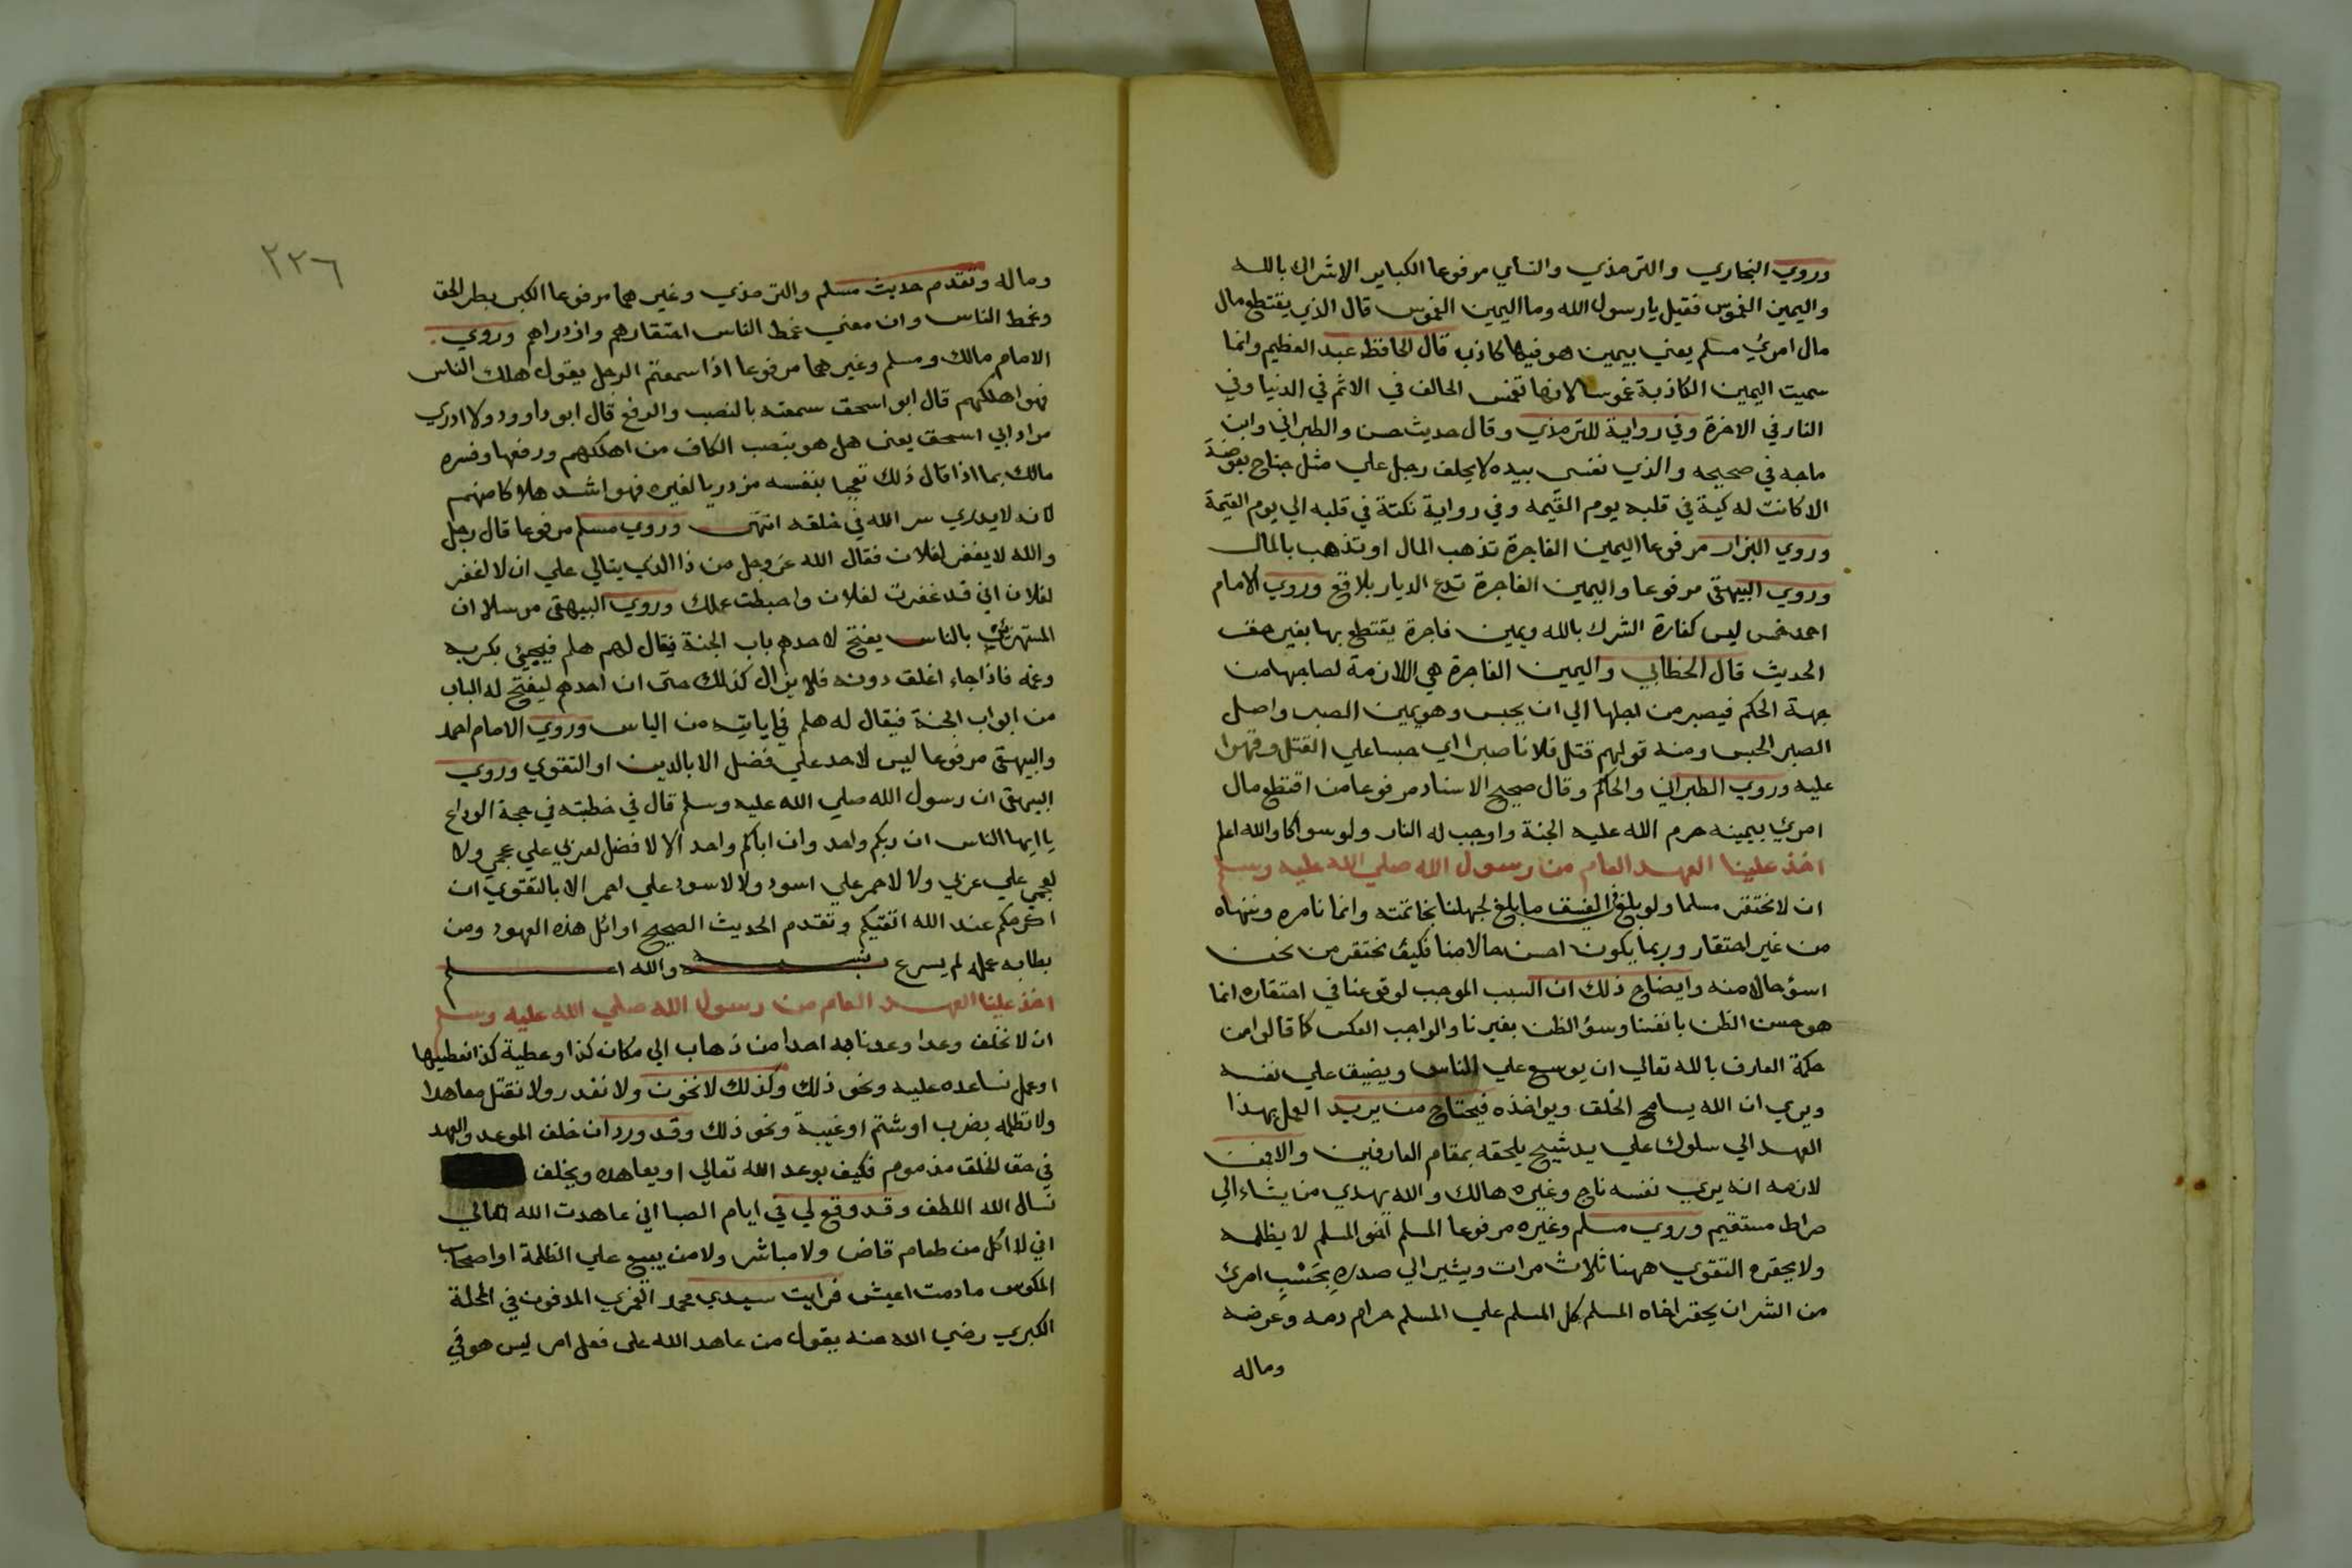 وروي البخاري والترمذي والنساي مرفوعا الكباير الاشراك بالله
واليمين الغموس فقيل يا رسول الله وما اليمين الغموس قال الذي يقتطع مال
مال امرئ مسلم يعني بيمين هو فيها كاذب قال الحافظ عبد العظيم وانما
سميت اليمين الكاذبة غموسا لانها تغمس الحالف في الاثم في الدنيا وفي
النار في الاخرة وفي رواية للترمذي وقال حديث حسن والطبراني وابن
ماجه في صحيحه والذي نفسي بيده لا يحلف رجل علي مثل جناح بعوضة
الا كانت له كية في قلبه يوم القيمه وفي رواية نكتة في قلبه الي يوم القيمة
وروي البزار مرفوعا اليمين الفاجرة تذهب المال او تذهب بالمال
وروي البيهقي مرفوعا واليمين الفاجرة تدع الديار بلاقع وروي الامام
احمد خمس ليس كفارة الشرك بالله ويمين فاجرة يقتطع بها بغير حق
الحديث قال الخطابي واليمين الفاجرة هي اللازمة لصاحبها من
جهة الحكم فيصبر من اجلها الي ان يحبس وهو يمين الصبر واصل
الصبر الحبس ومنه قولهم قتل فلانا صبرا اي حبسا علي القتل وقهرا
عليه وروي الطبراني والحاكم وقال صحيح الاسناد مرفوعا من اقتطع مال
امرئ بيمينه حرم الله عليه الجنة واوجب له النار ولو سواكا والله اعلم
اخذ علينا العهد العام من رسول الله صلي الله عليه وسلم
ان لا نحتقر مسلما ولو بلغ في الفسق ما بلغ لجهلنا بخاتمته وانما نامره وننهاه
من غير احتقار وربما يكون احسن حالا منا فكيف نحتقر من نحن
اسؤ حالا منه وايضاح ذلك ان السبب الموجب لوقوعنا في احتقاره انما
هو حسن الظن بانفسنا وسؤ الظن بغيرنا والواجب العكس كما قالوا من
حكمة العارف بالله تعالي ان يوسع علي الناس ويضيق علي نفسه
ويري ان الله يسامح الخلق ويواخذه فيحتاج من يريد العمل بهذا
العهد الي سلوك علي يد شيخ يلحقه بمقام العارفين والا فمن
لازمه انه يري نفسه ناج وغيره هالك والله يهدي من يشاء الي
صراط مستقيم وروي مسلم وغيره مرفوعا المسلم اخو المسلم لا يظلمه
ولا يحقره التقوي ههنا ثلاث مرات ويشير الي صدره بِحَسْبِ امرئ
من الشر ان يحقر اخاه المسلم كل المسلم علي المسلم حرام دمه وعرضه
وماله
٢٢٦
وماله وتقدم حديث مسلم والترمذي وغيرهما مرفوعا الكبر بطر الحق
وغمط الناس وان معني غمط الناس احتقارهم وازدراهم وروي
الامام مالك ومسلم وغيرهما مرفوعا اذا سمعتم الرجل يقول هلك الناس
فهو اهلكهم قال ابو اسحق سمعته بالنصب والرفع قال ابو داوود ولا ادري
مراد ابي اسحق يعني هل هو بنصب الكاف من اهلكهم ورفعها وفسره
مالك بما اذا قال ذلك تعجبا بنفسه مزدريا لغيره فهو اشد هلاكا منهم
لانه لا يدري سر الله في خلقه انتهى وروي مسلم مرفوعا قال رجل
والله لا يغفر لفلان فقال الله عز وجل من ذا الذي يتالي علي ان لا اغفر
لفلان اني قد غفرت لفلان واحبطت عملك وروي البيهقي مرسلا ان
المستهزئين بالناس يفتح لاحدهم باب الجنة فيقال لهم هلم فيجيئ بكربه
وغمه فاذا جاء اغلق دونه فلا يزال كذلك حتى ان احدهم ليفتح له الباب
من ابواب الجنة فيقال له هلم فما ياتيه من الياس وروي الامام احمد
والبيهقي مرفوعا ليس لاحد علي فضل الا بالدين او التقوي وروي
البيهقي ان رسول الله صلي الله عليه وسلم قال في خطبته في حجة الوداع
يا ايها الناس ان ربكم واحد وان اباكم واحد الا لا فضل لعربي علي عجمي ولا
لعجمي علي عربي ولا لاحمر علي اسود ولا لاسود علي احمر الا بالتقوي ان
اكرمكم عند الله اتقيكم وتقدم الحديث الصحيح اوائل هذه العهود ومن
بطا به عمله لم يسرع به نسبه والله اعلم
اخذ علينا العهد العام من رسول الله صلي الله عليه وسلم
ان لا نخلف وعدا وعدنا به احدا من ذهاب الي مكان كذا وعطية كذا نعطيها
او عمل نساعده عليه ونحو ذلك وكذلك لا نخون ولا نغدر ولا نقتل معاهدا
ولا نظلمه بضرب او شتم او غيبة ونحو ذلك وقد ورد ان خلف الموعد والعهد
في حق الخلق مذموم فكيف بوعد الله تعالي او يعاهده ويخلف
نسال الله اللطف وقد وقع لي في ايام الصبا اني عاهدت الله تعالي
اني لا اكل من طعام قاض ولا مباشر ولا من يبيع علي الظلمة او اصحاب
المكوس ما دمت اعيش فرايت سيدي محمد الغمري المدفون في المحلة
الكبري رضي الله عنه يقول من عاهد الله على فعل امر ليس هو في